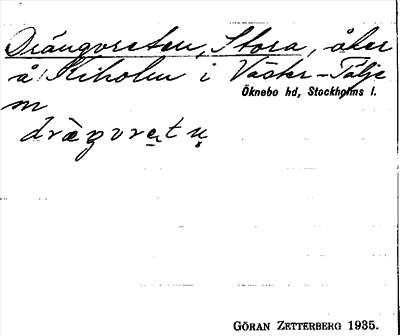 Drängvreten, Stora, åker
å Kiholm i Väster-Tälje
Öknebo hd, Stockholms l.
m
GÖRAN ZETTERBERG 1935.